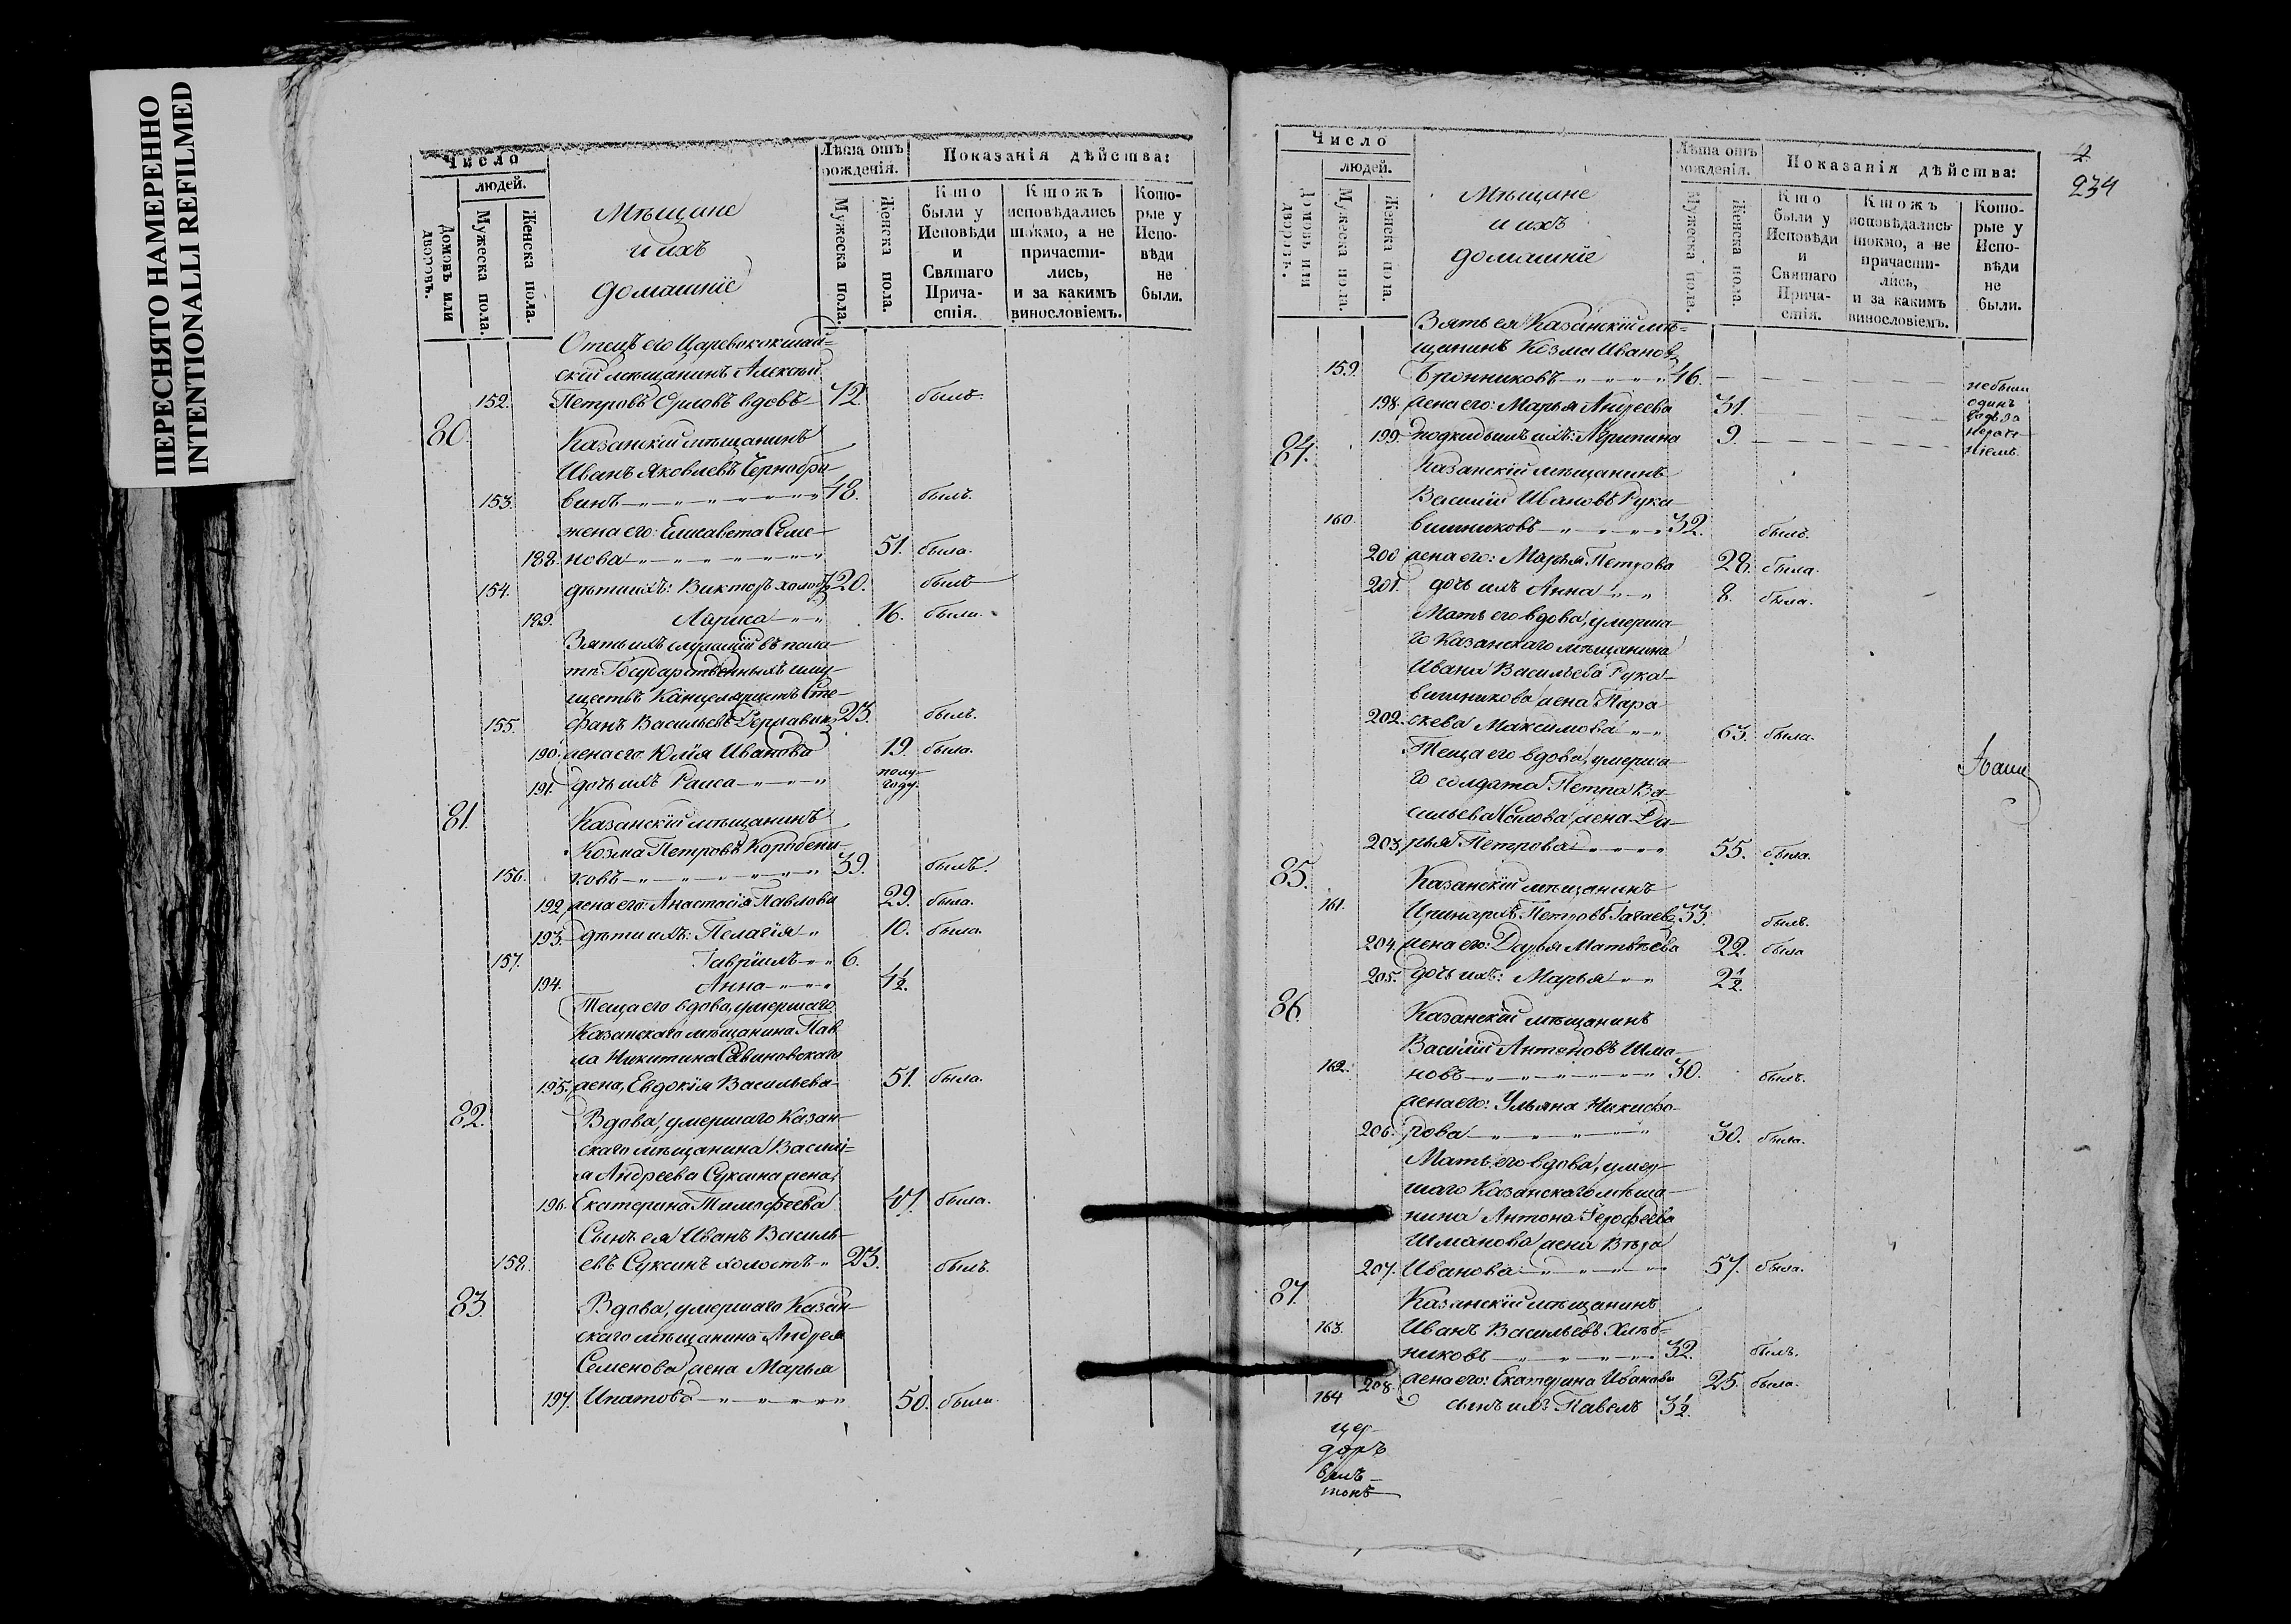 ПЕРЕСНЯТО НАМЕРЕННО
INTENTIONALLI REFILMED
Число
людей.
Домовъ или дворовъ.
Мужеска пола.
Женска пола.
Мѣщане
и ихъ
домашніе
Лѣта отъ рожденія.
Мужеска пола.
Женска пола.
Показанія дѣйства:
Кто были у Исповѣди и Святаго Причастія.
Ктожъ исповѣдались токмо, а не причастились, и за какимъ винословіемъ.
Которые у Исповѣди не были.
Отецъ его Царевококшай-
скій мѣщанинъ Алексѣй
152. Петровъ Орловъ вдовъ 72. былъ.
80. Казанскій мѣщанинъ
Иванъ Яковлевъ Чернобро
153. винъ 48. былъ.
жена его: Елисавета Семе-
188. нова 51. была.
154. дѣти ихъ: Викторъ холостъ 20. былъ
189. Лариса 16. была.
Зять ихъ служащій въ пала
тѣ Государственныхъ иму-
ществъ Канцеляристъ Сте-
155. фанъ Васильевъ 23. былъ.
190. жена его Юлія Иванова 19. была.
191. дочь ихъ Раиса полу-
году.
81. Казанскій мѣщанинъ
Козма Петровъ Коробени-
156. ковъ 39. былъ.
192. жена его: Анастасія Павлова 29. была.
193. дѣти ихъ: Пелагія 10. была.
157. Гавріилъ 6.
194. Анна 4½.
Теща его вдова, умершаго
Казанскаго мѣщанина Пав
ла Никитина Савиновскаго
195. жена, Евдокія Васильева 51. была.
82. Вдова, умершаго Казан-
скаго мѣщанина Василі-
я Андреева Суксина жена,
196. Екатерина Тимофеева 47. была.
Сынъ ея Иванъ Василь-
158. евъ Суксинъ холостъ 23. былъ.
83. Вдова, умершаго Казан-
скаго мѣщанина Андрея
Семенова жена Марья
197. Ипатова 50. была.
Число
людей.
Домовъ или дворовъ.
Мужеска пола.
Женска пола.
Мѣщане
и ихъ
домашніе
Лѣта отъ рожденія.
Мужеска пола.
Женска пола.
Показанія дѣйства:
Кто были у Исповѣди и Святаго Причастія.
Ктожъ исповѣдались токмо, а не причастились, и за какимъ винословіемъ.
Которые у Исповѣди не были.
234
Зять ея Казанскій мѣ-
щанинъ Козма Ивановъ
159. Бронниковъ 46. небыли
198. жена его: Марья Андреева 31.
199. подкидышъ ихъ: Агрипина 9.
84. Казанскій мѣщанинъ
Василій Ивановъ Рука-
160. вишниковъ 32. былъ.
200 жена его: Марья Петрова 28. была.
201. дочь ихъ Анна 8. была.
Мать его вдова, умерша-
го Казанскаго мѣщанина
Ивана Васильева Рука-
вишникова жена Пара
202. скева Максимова 63. была.
Теща его вдова, умерша-
го солдата Петра Ва-
сильева жена Да-
203. рья Петрова 55. была.
85. Казанскій мѣщанинъ
161. Петровъ 33. былъ.
204. жена его: Дарья Матвѣева 22. была
205. дочь ихъ: Марья 2½.
86. Казанскій мѣщанинъ
Василій Антоновъ Шма-
162. новъ 30. былъ.
жена его: Ульяна Никифо-
206. рова 30. была.
Мать его вдова, умер-
шаго Казанскаго мѣща-
нина Антона Герофеева
Шманова жена Вѣра
207. Иванова 57. была.
87. Казанскій мѣщанинъ
163. Иванъ Васильевъ Хлѣб-
никовъ 32. былъ.
208. жена его: Екатерина Иванова 25. была.
164 сынъ ихъ Павелъ 3½.